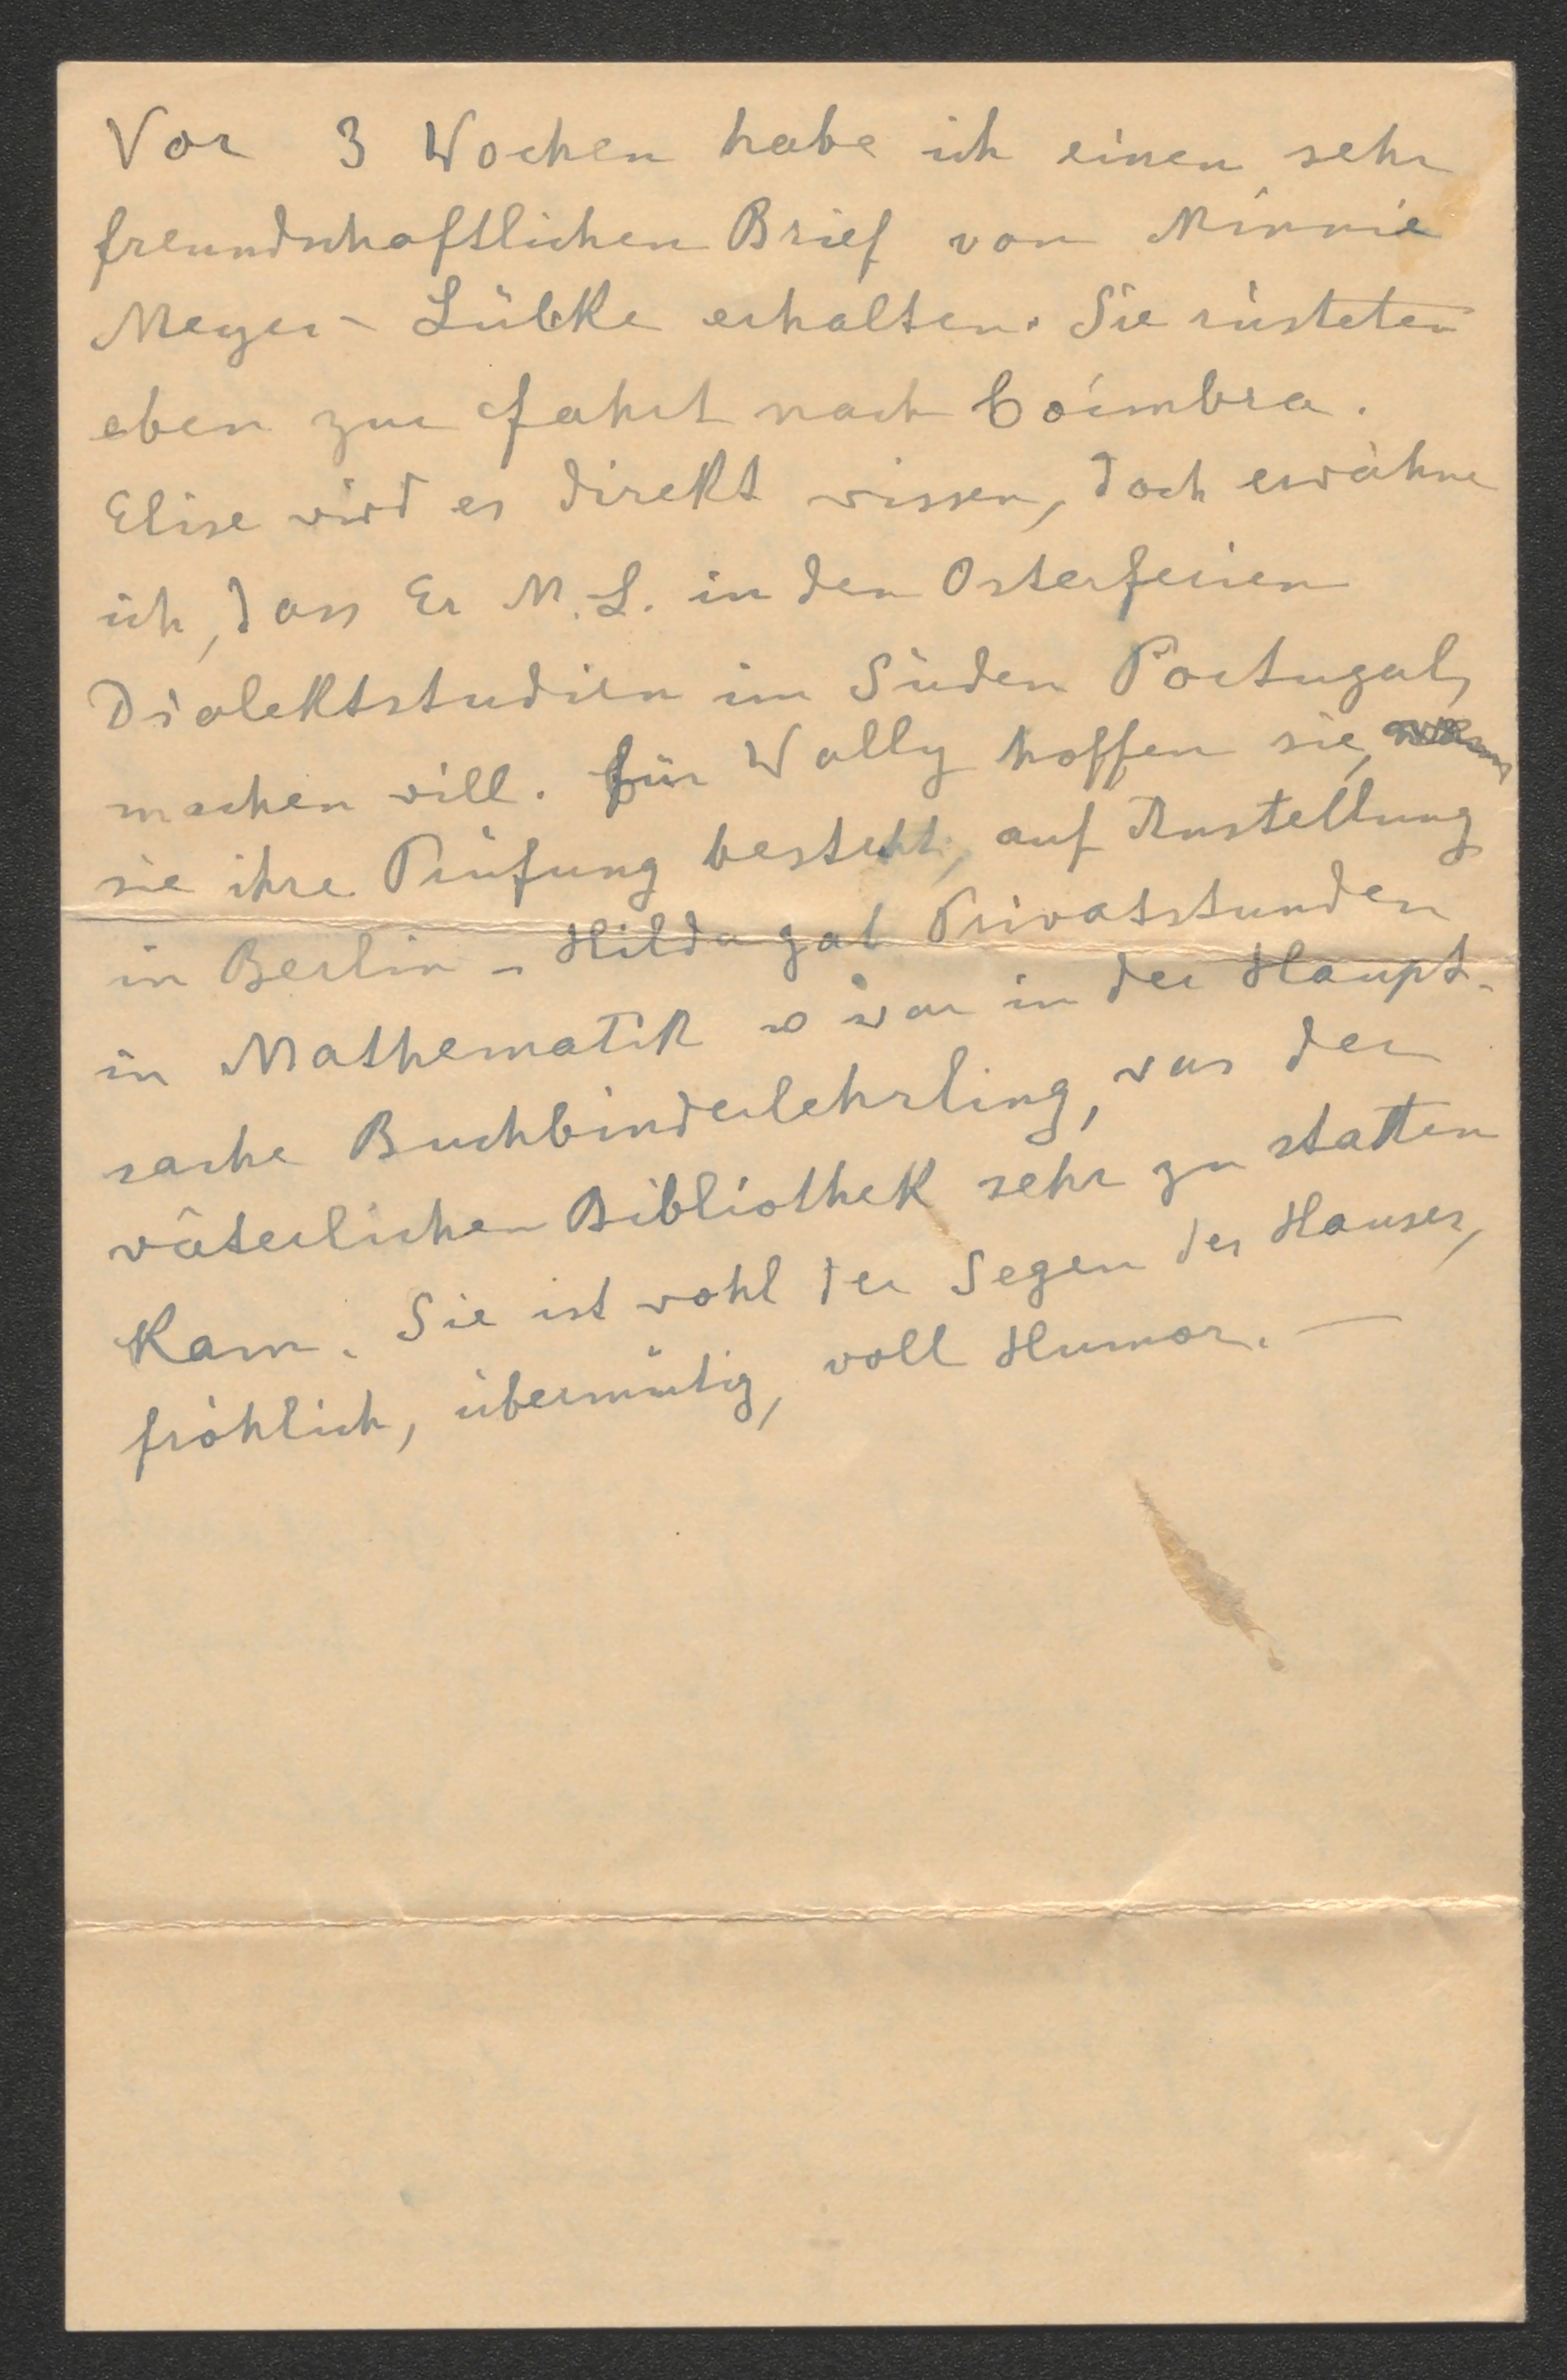 Vor 3 Wochen habe ich einen sehr
freundschaftlichen Brief von Minnie
Meyer-Lübke erhalten. Sie rüsteten
eben zur Fahrt nach Coimbra.
Elise wird es direkt wissen, doch erwähne
ich, dass Er M. L. in den Osterferien
Dialektstudien im Süden Portugals
machen will. Für Wally hoffen sie,
sie ihre Prüfung besteht, auf Anstellung
in Berlin – Hilda gab Privatstunden
in Mathematik u war in der Haupt-
sache Buchbinderlehrling, was der
väterlichen Bibliothek sehr zu statten
kam. Sie ist wohl der Segen des Hauses,
fröhlich, übermütig, voll Humor. —